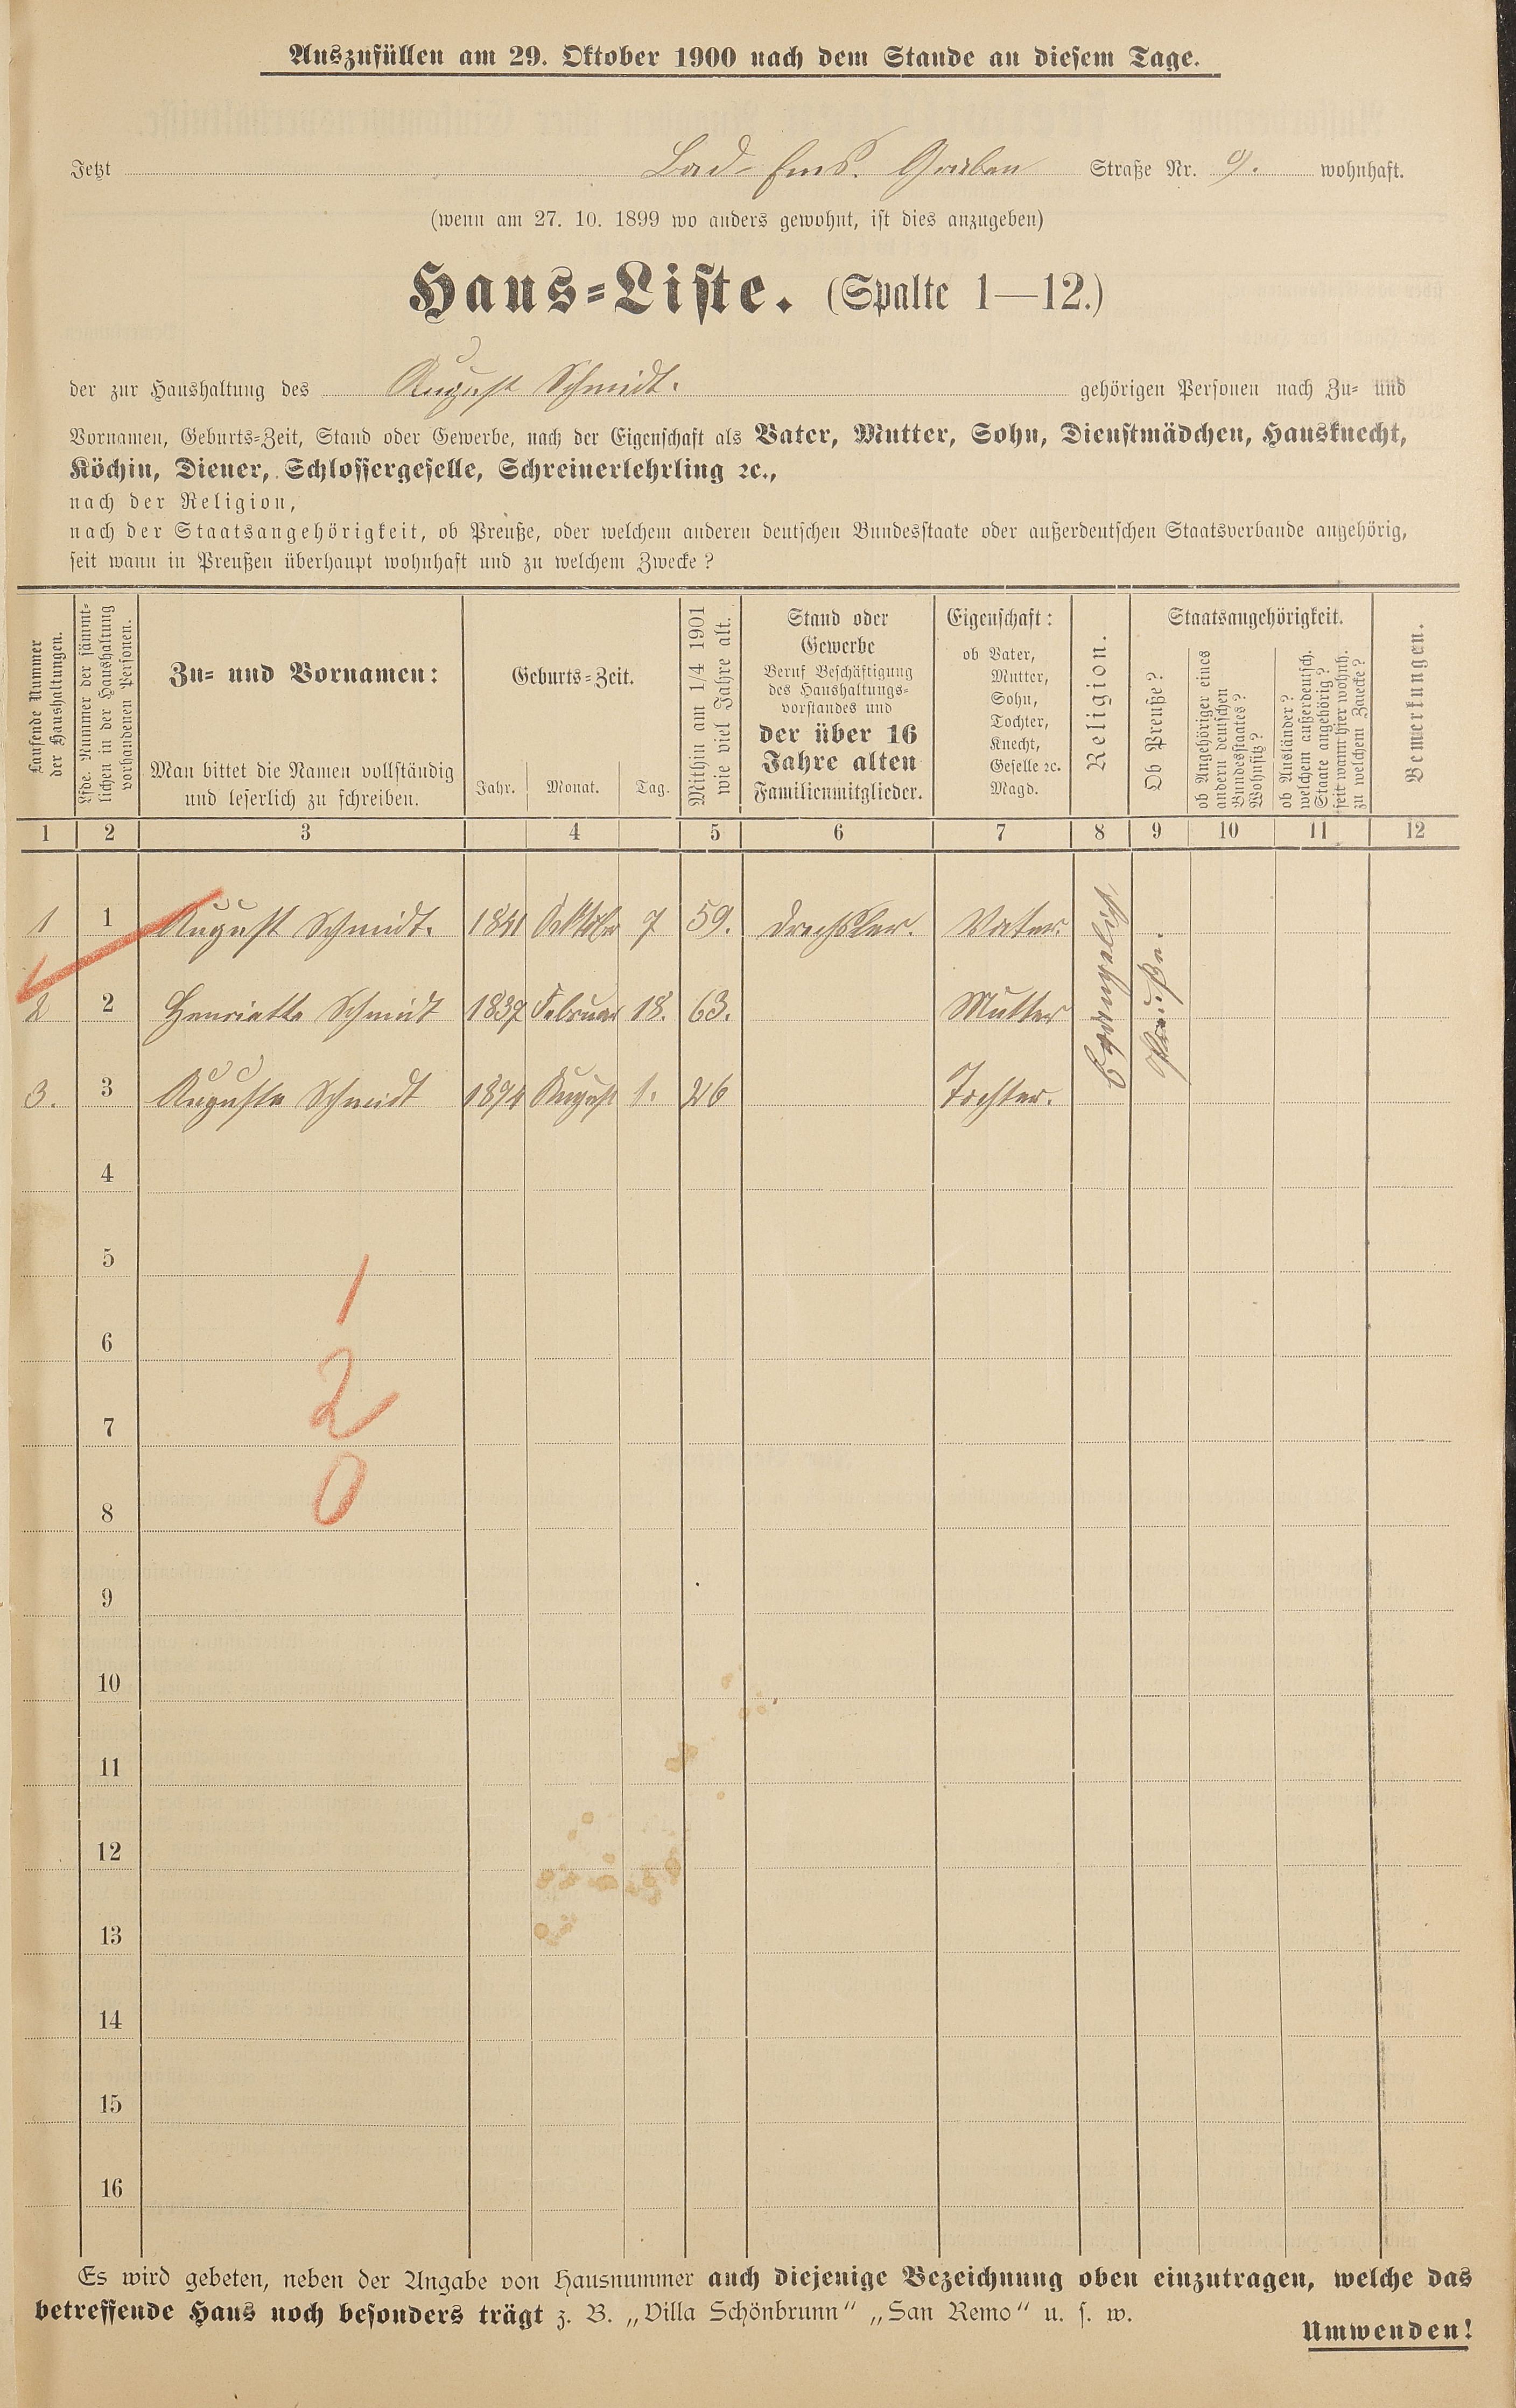 Auszufüllen am 29. Oktober 1900 nach dem Stande an diesem Tage.
Jetzt Bad-Ems. Graben Straße Nr. 9. wohnhaft.
(wenn am 27. 10. 1899 wo anders gewohnt, ist dies anzugeben)
Haus-Liste. (Spalte 1—12.)
der zur Haushaltung des August Schmidt. gehörigen Personen nach Zu- und
Vornamen, Geburts-Zeit, Stand oder Gewerbe, nach der Eigenschaft als Vater, Mutter, Sohn, Dienstmädchen, Hausknecht,
Köchin, Diener, Schlossergeselle, Schreinerlehrling ꝛc.,
nach der Religion,
nach der Staatsangehörigkeit, ob Preuße, oder welchem anderen deutschen Bundesstaate oder außerdeutschen Staatsverbande angehörig,
seit wann in Preußen überhaupt wohnhaft und zu welchem Zwecke?
Laufende Nummer
der Haushaltungen.
Lfde. Nummer der sämmt-
lichen in der Haushaltung
vorhandenen Personen.
Zu- und Vornamen:
Man bittet die Namen vollständig
und leserlich zu schreiben.
Geburts-Zeit.
Jahr. Monat. Tag.
Mithin am 1/4 1901
wie viel Jahre alt.
Stand oder
Gewerbe
Beruf Beschäftigung
des Haushaltungs-
vorstandes und
der über 16
Jahre alten
Familienmitglieder.
Eigenschaft:
ob Vater,
Mutter,
Sohn,
Tochter,
Knecht,
Geselle ꝛc.
Magd.
Religion.
Staatsangehörigkeit.
Ob Preuße?
ob Angehöriger eines
andern deutschen
Bundesstaates?
Wohnsitz?
ob Ausländer?
welchem außerdeutsch.
Staate angehörig?
seit wann hier wohnh.
zu welchem Zwecke?
Bemerkungen.
1 2 3 4 5 6 7 8 9 10 11 12
1 1 August Schmidt. 1841 Oktober 7 59. Drechsler. Vater. Evangelisch Preuße.
2 2 Henriette Schmidt 1837 Februar 18. 63. Mutter
3. 3 Auguste Schmidt 1874 August 1. 26 Tochter.
4
5
1
6
2
7
0
8
9
10
11
12
13
14
15
16
Es wird gebeten, neben der Angabe von Hausnummer auch diejenige Bezeichnung oben einzutragen, welche das
betreffende Haus noch besonders trägt z. B. „Villa Schönbrunn“ „San Remo“ u. s. w.
Umwenden!